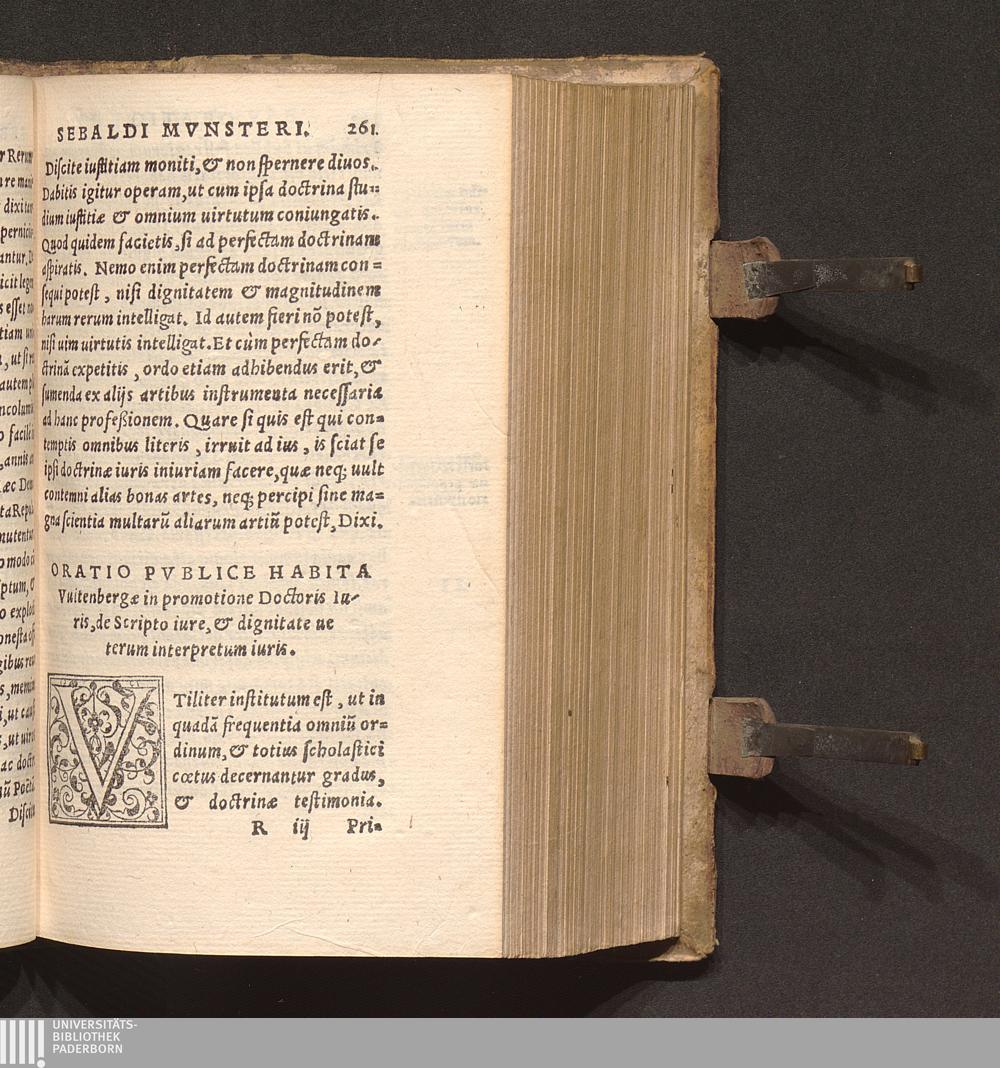 SEBALDI MVNSTERI. 261.
Diſcite iuſtitiam moniti, & non ſpernere diuos.
Dabitis igitur operam, ut cum ipſa doctrina ſtu=
dium iuſtitiæ & omnium uirtutum coniungatis.
Quod quidem facietis, ſi ad perfectam doctrinam
aſpiratis. Nemo enim perfectam doctrinam con=
ſequi poteſt, niſi dignitatem & magnitudinem
harum rerum intelligat. Id autem fieri nõ poteſt,
niſi uim uirtutis intelligat. Et cùm perfectam do-
ctrinã expetitis, ordo etiam adhibendus erit, &
ſumenda ex alijs artibus inſtrumenta neceſſaria
ad hanc profeßionem. Quare ſi quis eſt qui con=
temptis omnibus literis, irruit ad ius, is ſciat ſe
ipſi doctrinæ iuris iniuriam facere, quæ neq; uult
contemni alias bonas artes, neq; percipi ſine ma=
gna ſcientia multarũ aliarum artiũ poteſt, Dixi.
ORATIO PVBLICE HABITA
Vuitenbergæ in promotione Doctoris Iu-
ris, de Scripto iure, & dignitate ue
terum interpretum iuris.
VTiliter inſtitutum eſt, ut in
quadã frequentia omniũ or=
dinum, & totius ſcholaſtici
cœtus decernantur gradus,
& doctrinæ teſtimonia.
R iij Pri=
UNIVERSITÄTS-
BIBLIOTHEK
PADERBORN